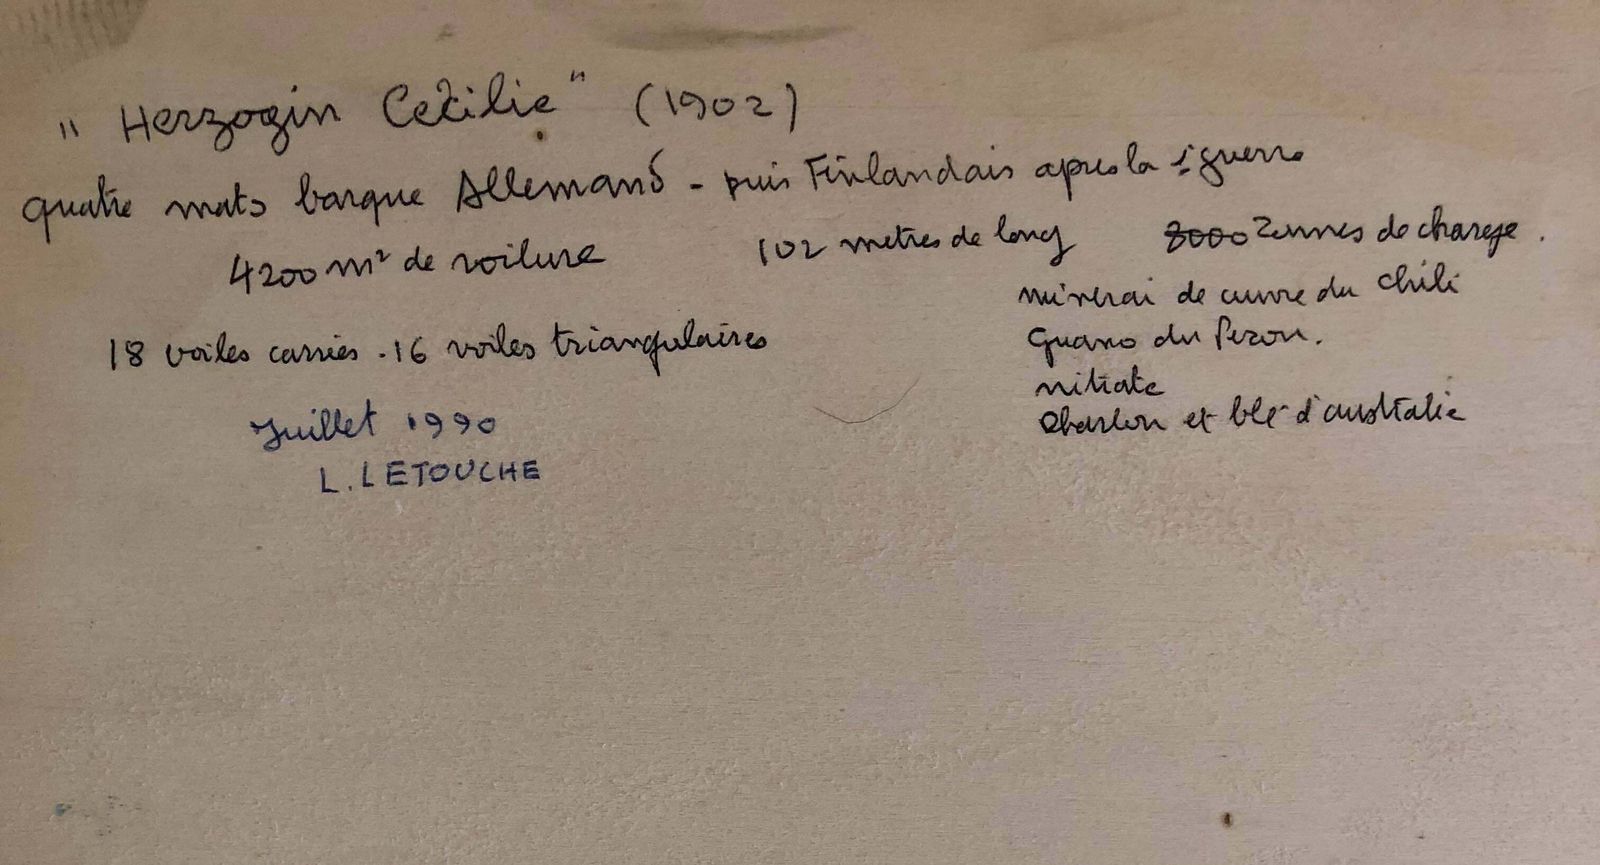 "Herzogin Cecilie" (1902)
quatre mats barque Allemand - puis Finlandais apres la 1e guerre
4200 m² de voilure 102 metres de long 3000 Tonnes de charge.
18 voiles carrées . 16 voiles triangulaires
minerai de cuivre du Chili
Guano du Perou.
nitrate
Charbon et blé d'australie
Juillet 1990
L. LETOUCHE